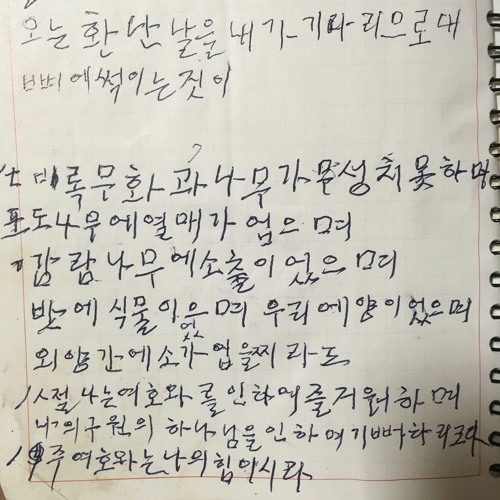 오는 환난 날을 내가 기다리므로 내
뼈에 썩이는 것이
비록 무화과나무가 무성치 못하며
포도나무에 열매가 업으며
감람나무에 소출이 없으며
밭에 식물이 없으며 우리에 양이 없으며
외양간에 소가 업을찌라도
나는 여호와를 인하여 즐거워하며
나의 구원의 하나님을 인하여 기뻐하리로다
주 여호와는 나의 힘이시라